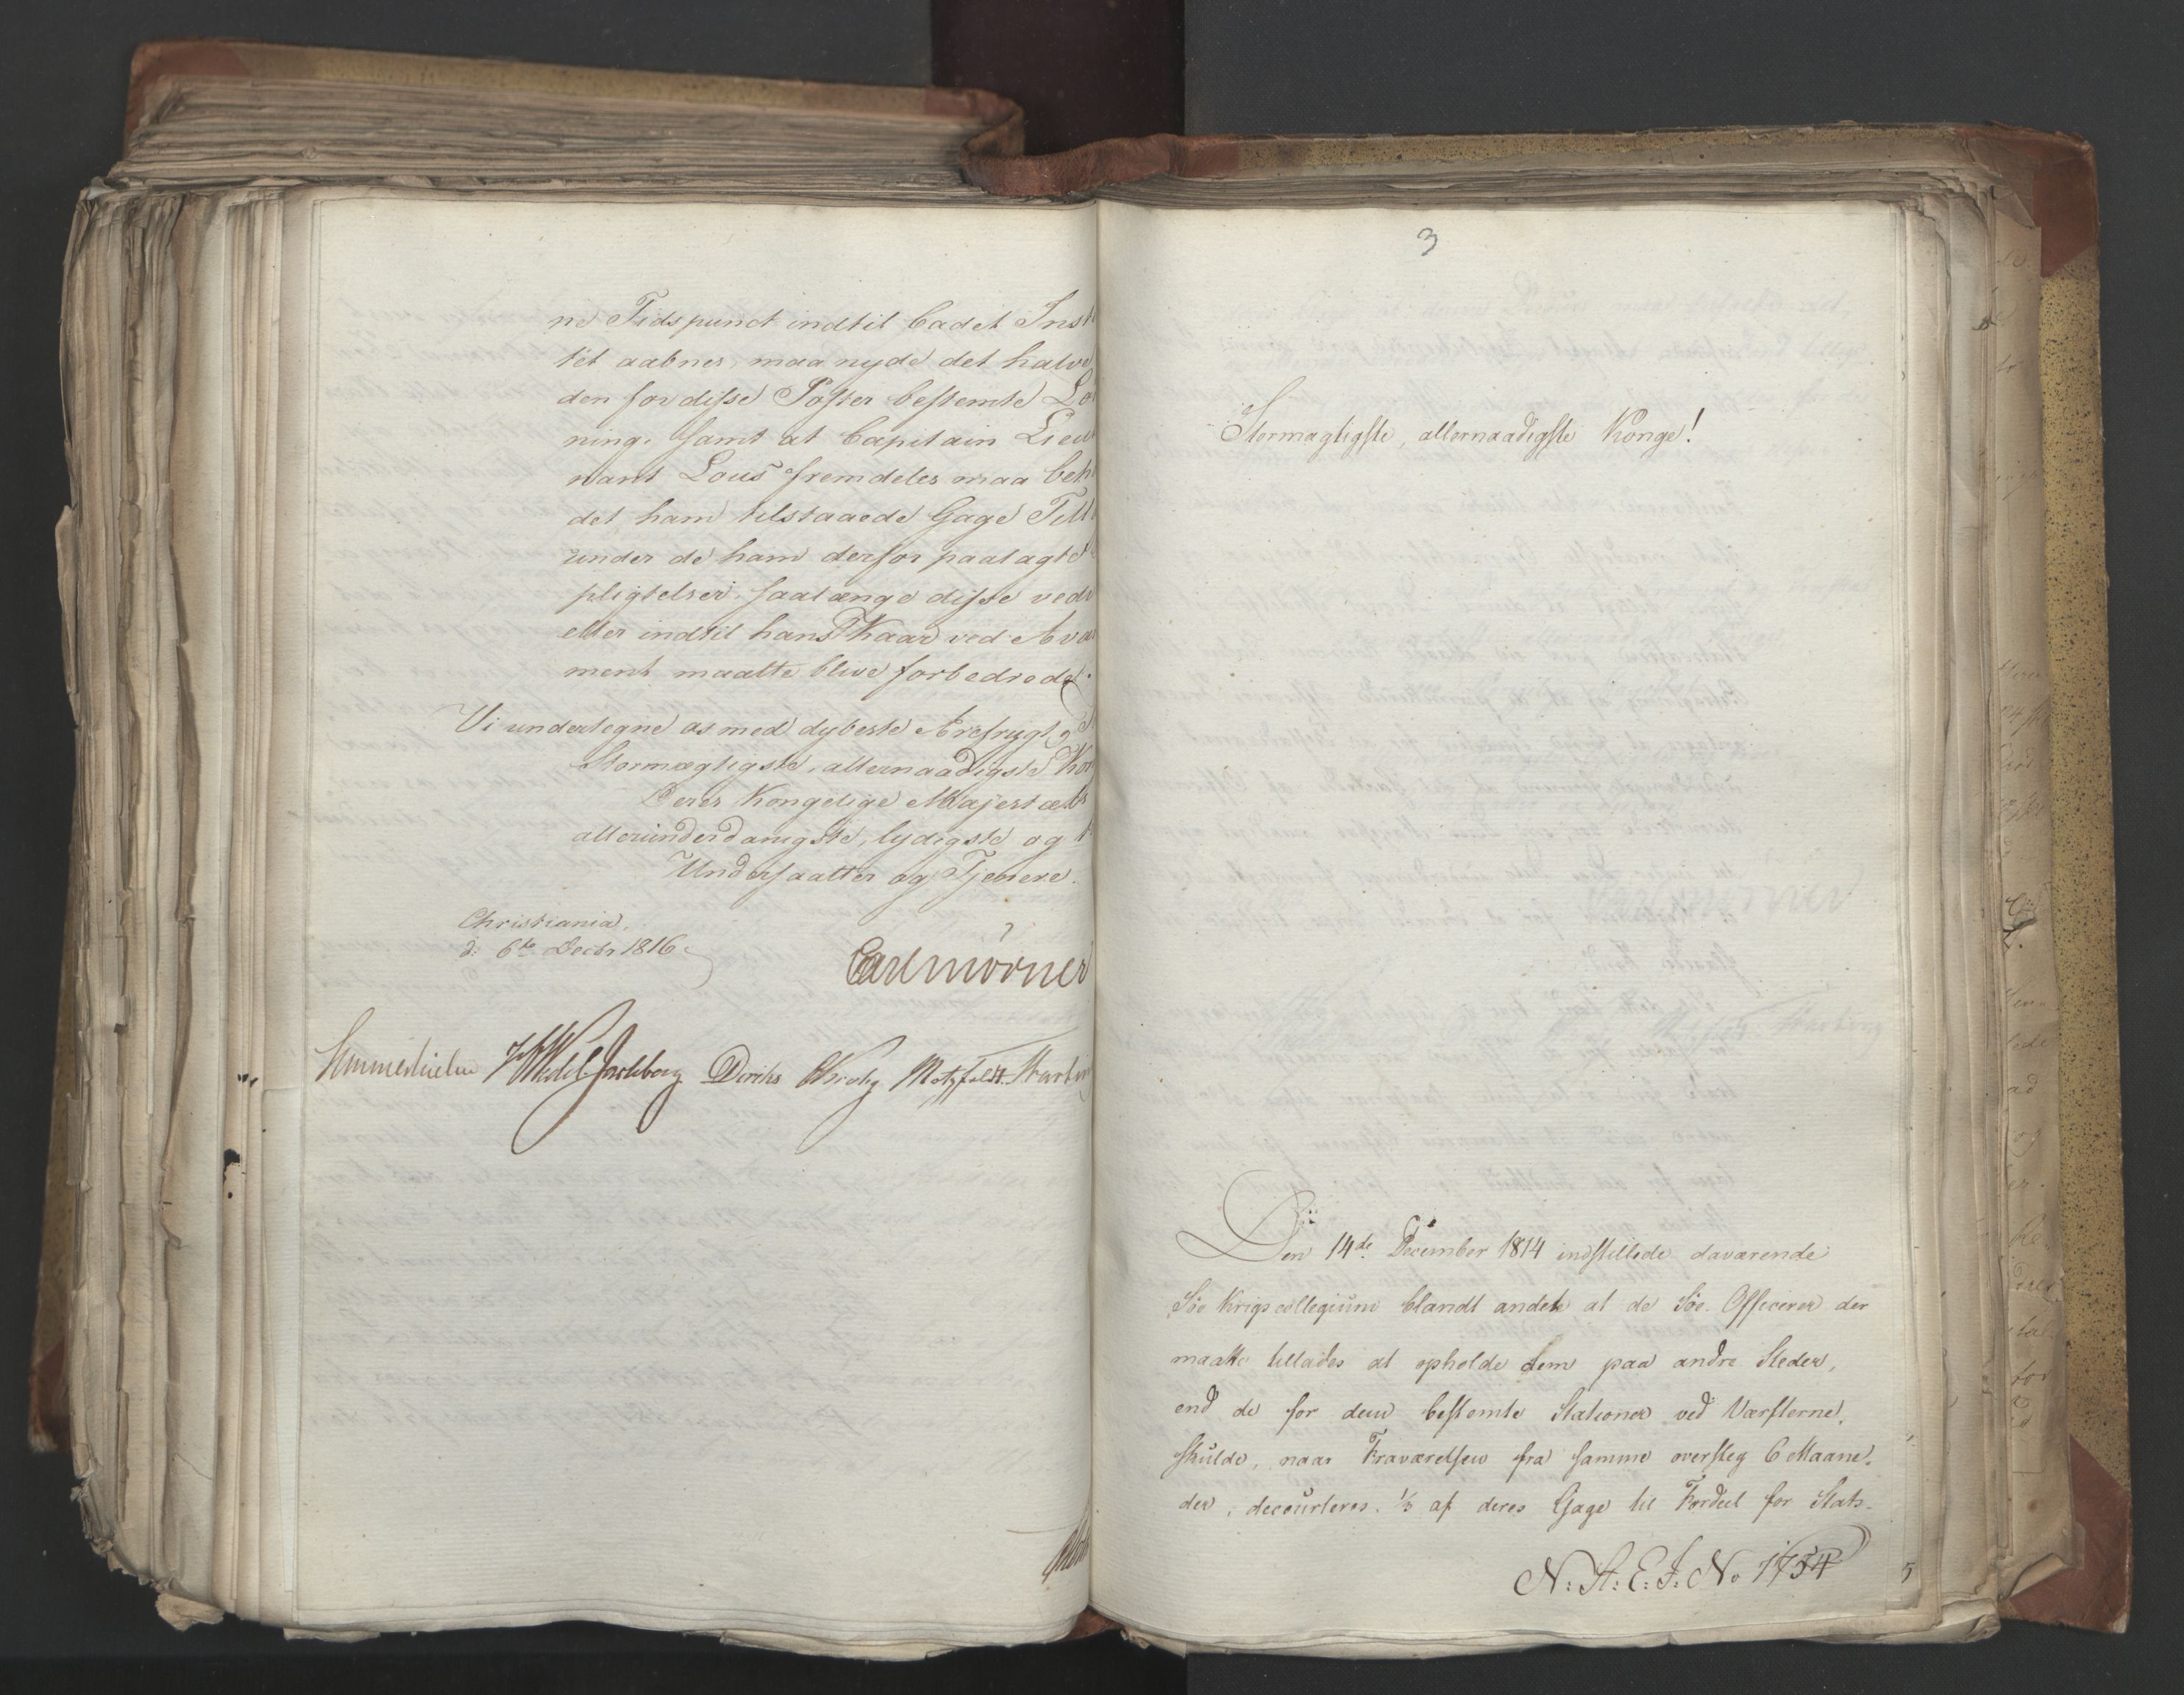 ne Tidspunct indtil Cadet Insti
tet aabnes, maa nyde det halve
den for disse Poster bestemte Lø
ning. Samt at Capitain Lieut
nant Lous fremdeles maa beh
det ham tilstaaede Gage Till
under de ham derfor paalagte
pligtelser, saalænge disse vedv
eller indtil hans Kaar ved Avan
ment maatte blive forbedrede.
Vi undertegne os med dybeste Ærefrygt,
Stormægtigste, allernaadigste Kon
Deres Kongelige Majestæts
allerunderdanigste, lydigste og
Undersaatter og Tjenere.
Christiania,
d: 6te Decbr 1816.
Carl Mörner
Sommerhielm HWedel Jarlsberg Diriks CKrohg Motzfeldt
3
Stormægtigste, allernaadigste Konge!
Den 14de December 1814 indstillede daværende
Søe Krigscollegium blandt andet at de Søe-Officerer der
maatte tillades at opholde dem paa andre Steder,
end de for dem bestemte Stationer ved Værfterne,
skulde, naar Fraværelsen fra samme oversteg 6 Maane-
der, decourteres ⅓ af deres Gage til Fordeel for Stats-
N: St: E: J: No 1754
5